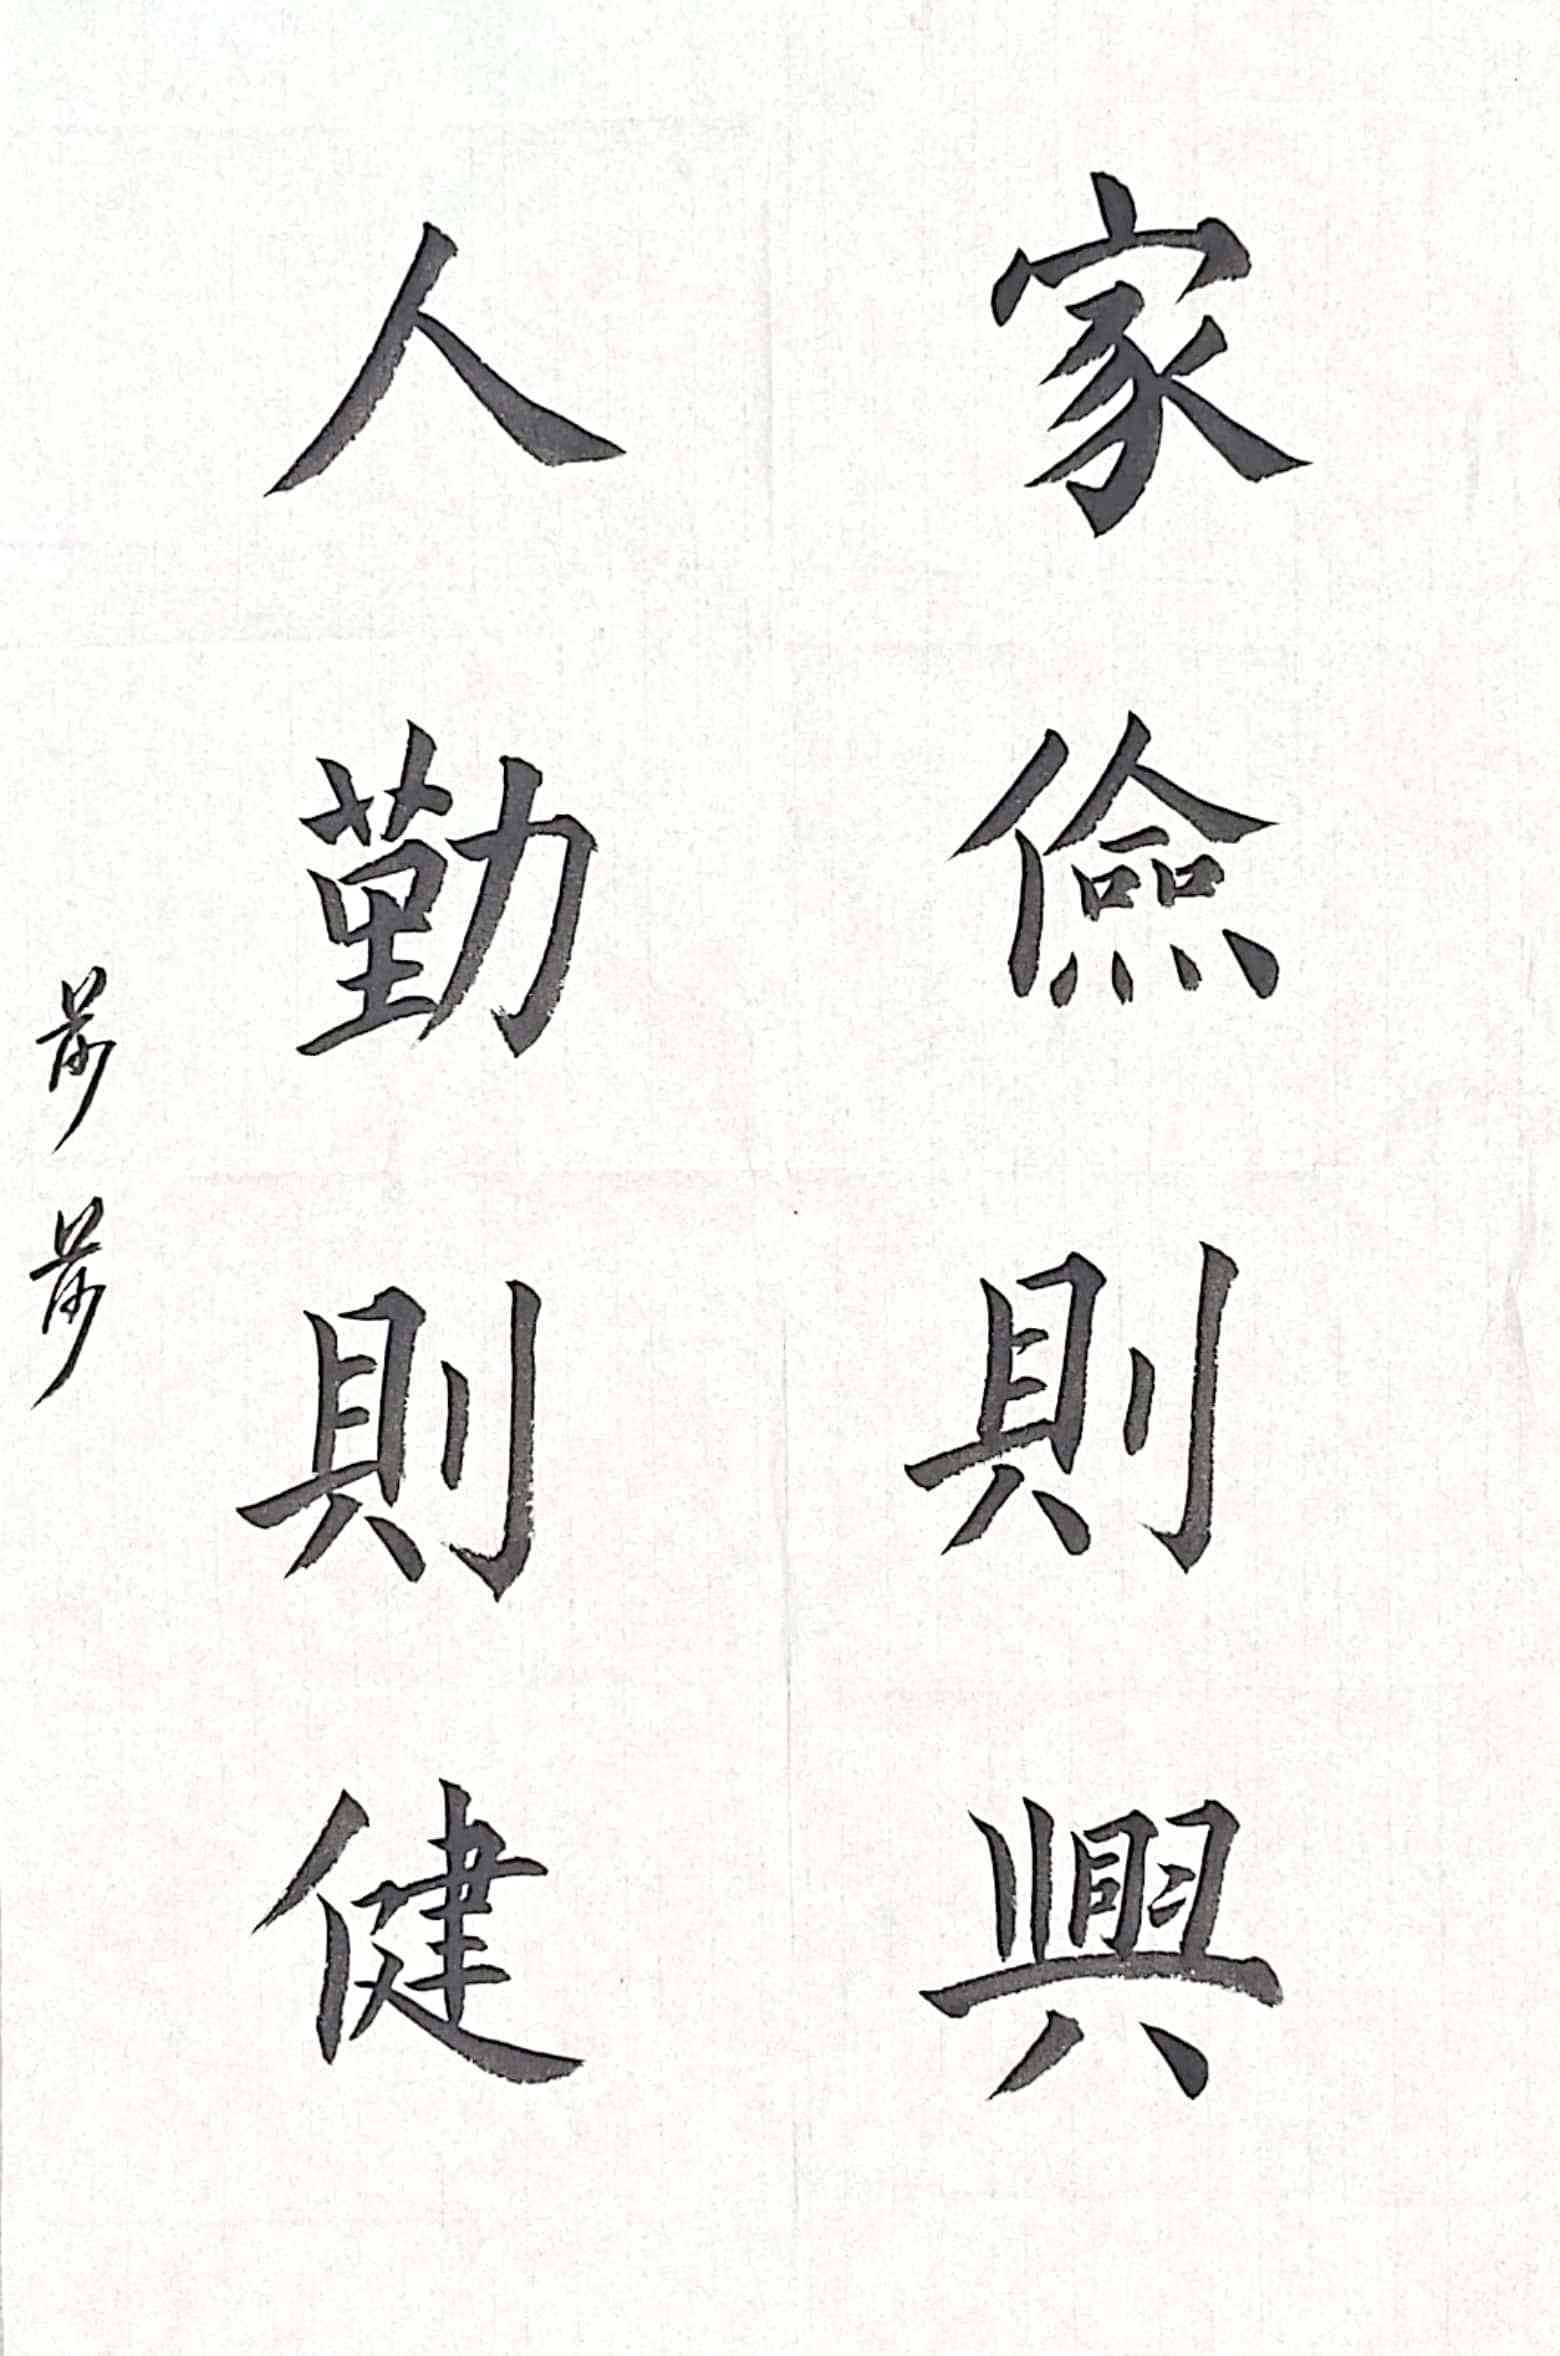 家儉則興
人勤則健